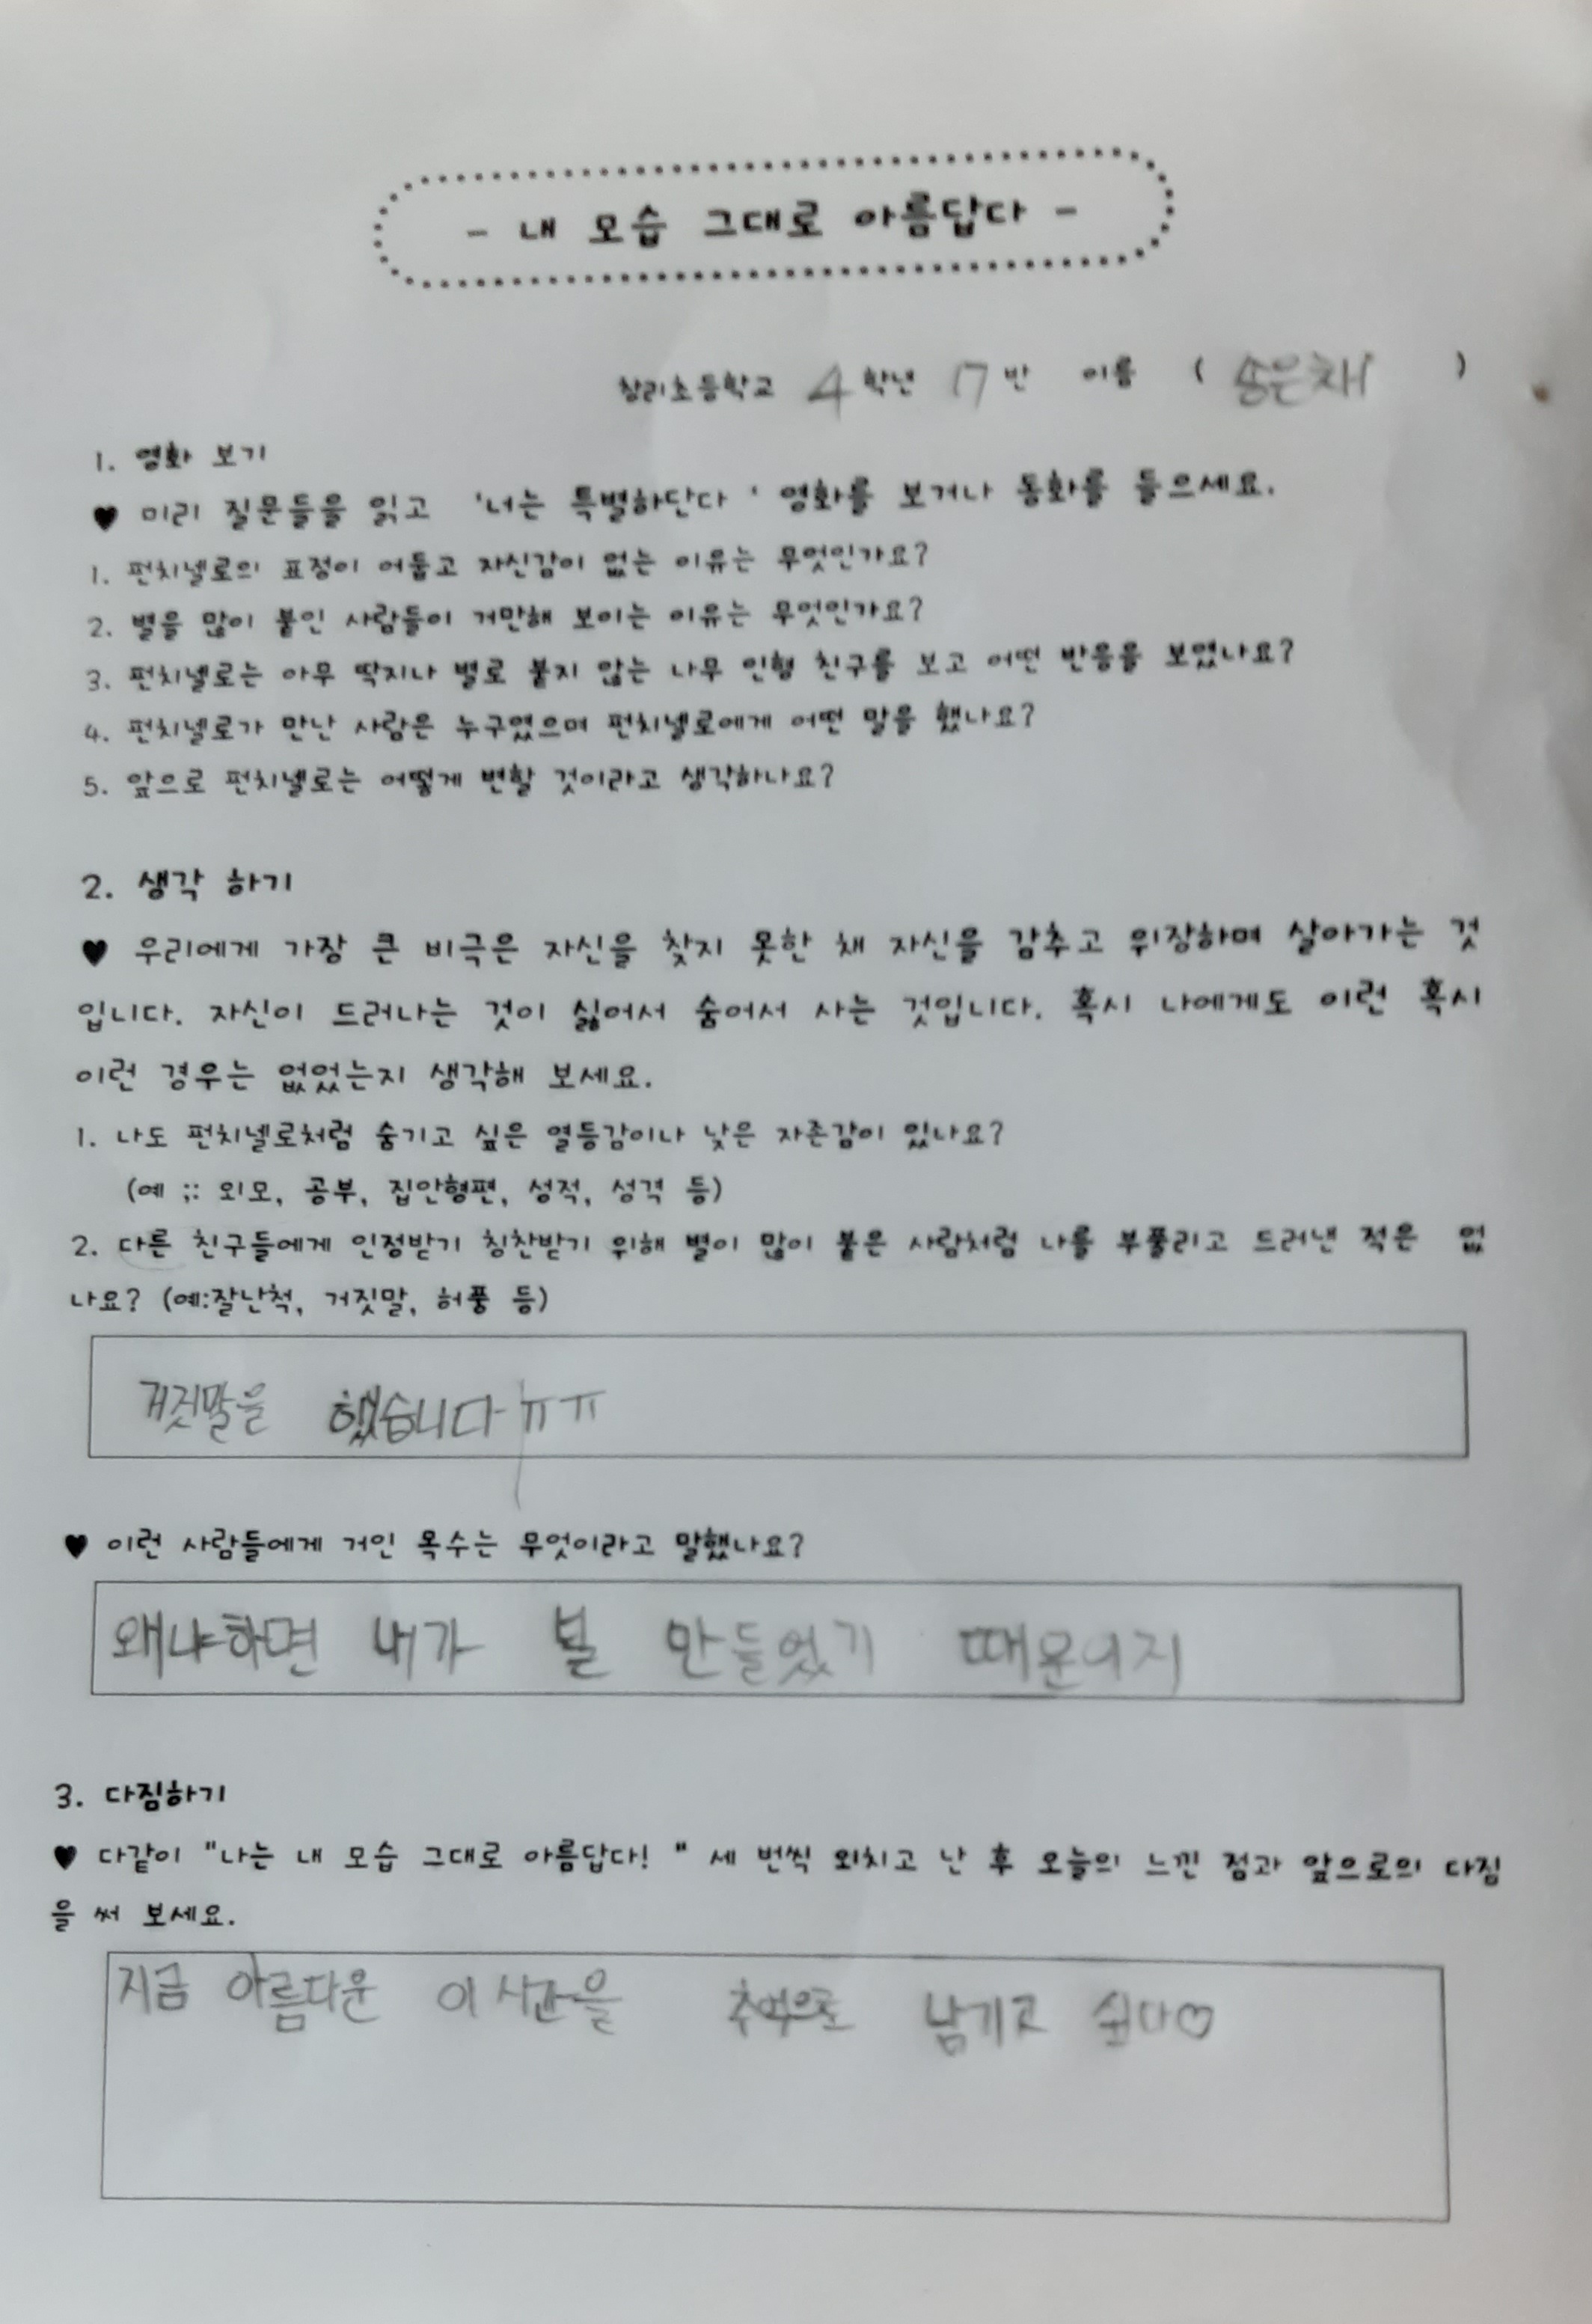 - 내 모습 그대로 아름답다 -
창리초등학교 4 학년 17 반 이름 ( 송은채 )
1. 영화 보기
♥ 미리 질문들을 읽고 '너는 특별하단다 ' 영화를 보거나 동화를 들으세요.
1. 펀치넬로의 표정이 어둡고 자신감이 없는 이유는 무엇인가요?
2. 별을 많이 붙인 사람들이 거만해 보이는 이유는 무엇인가요?
3. 펀치넬로는 아무 딱지나 별로 붙지 않는 나무 인형 친구를 보고 어떤 반응을 보였나요?
4. 펀치넬로가 만난 사람은 누구였으며 펀치넬로에게 어떤 말을 했나요?
5. 앞으로 펀치넬로는 어떻게 변할 것이라고 생각하나요?
2. 생각 하기
♥ 우리에게 가장 큰 비극은 자신을 찾지 못한 채 자신을 감추고 위장하며 살아가는 것
입니다. 자신이 드러나는 것이 싫어서 숨어서 사는 것입니다. 혹시 나에게도 이런 혹시
이런 경우는 없었는지 생각해 보세요.
1. 나도 펀치넬로처럼 숨기고 싶은 열등감이나 낮은 자존감이 있나요?
(예 ;: 외모, 공부, 집안형편, 성적, 성격 등)
2. 다른 친구들에게 인정받기 칭찬받기 위해 별이 많이 붙은 사람처럼 나를 부풀리고 드러낸 적은 없
나요? (예:잘난척, 거짓말, 허풍 등)
거짓말을 했습니다ㅠㅠ
♥ 이런 사람들에게 거인 목수는 무엇이라고 말했나요?
왜냐하면 내가 널 만들었기 때문이지
3. 다짐하기
♥ 다같이 "나는 내 모습 그대로 아름답다! " 세 번씩 외치고 난 후 오늘의 느낀 점과 앞으로의 다짐
을 써 보세요.
지금 아름다운 이 시간을 추억으로 남기고 싶다♡